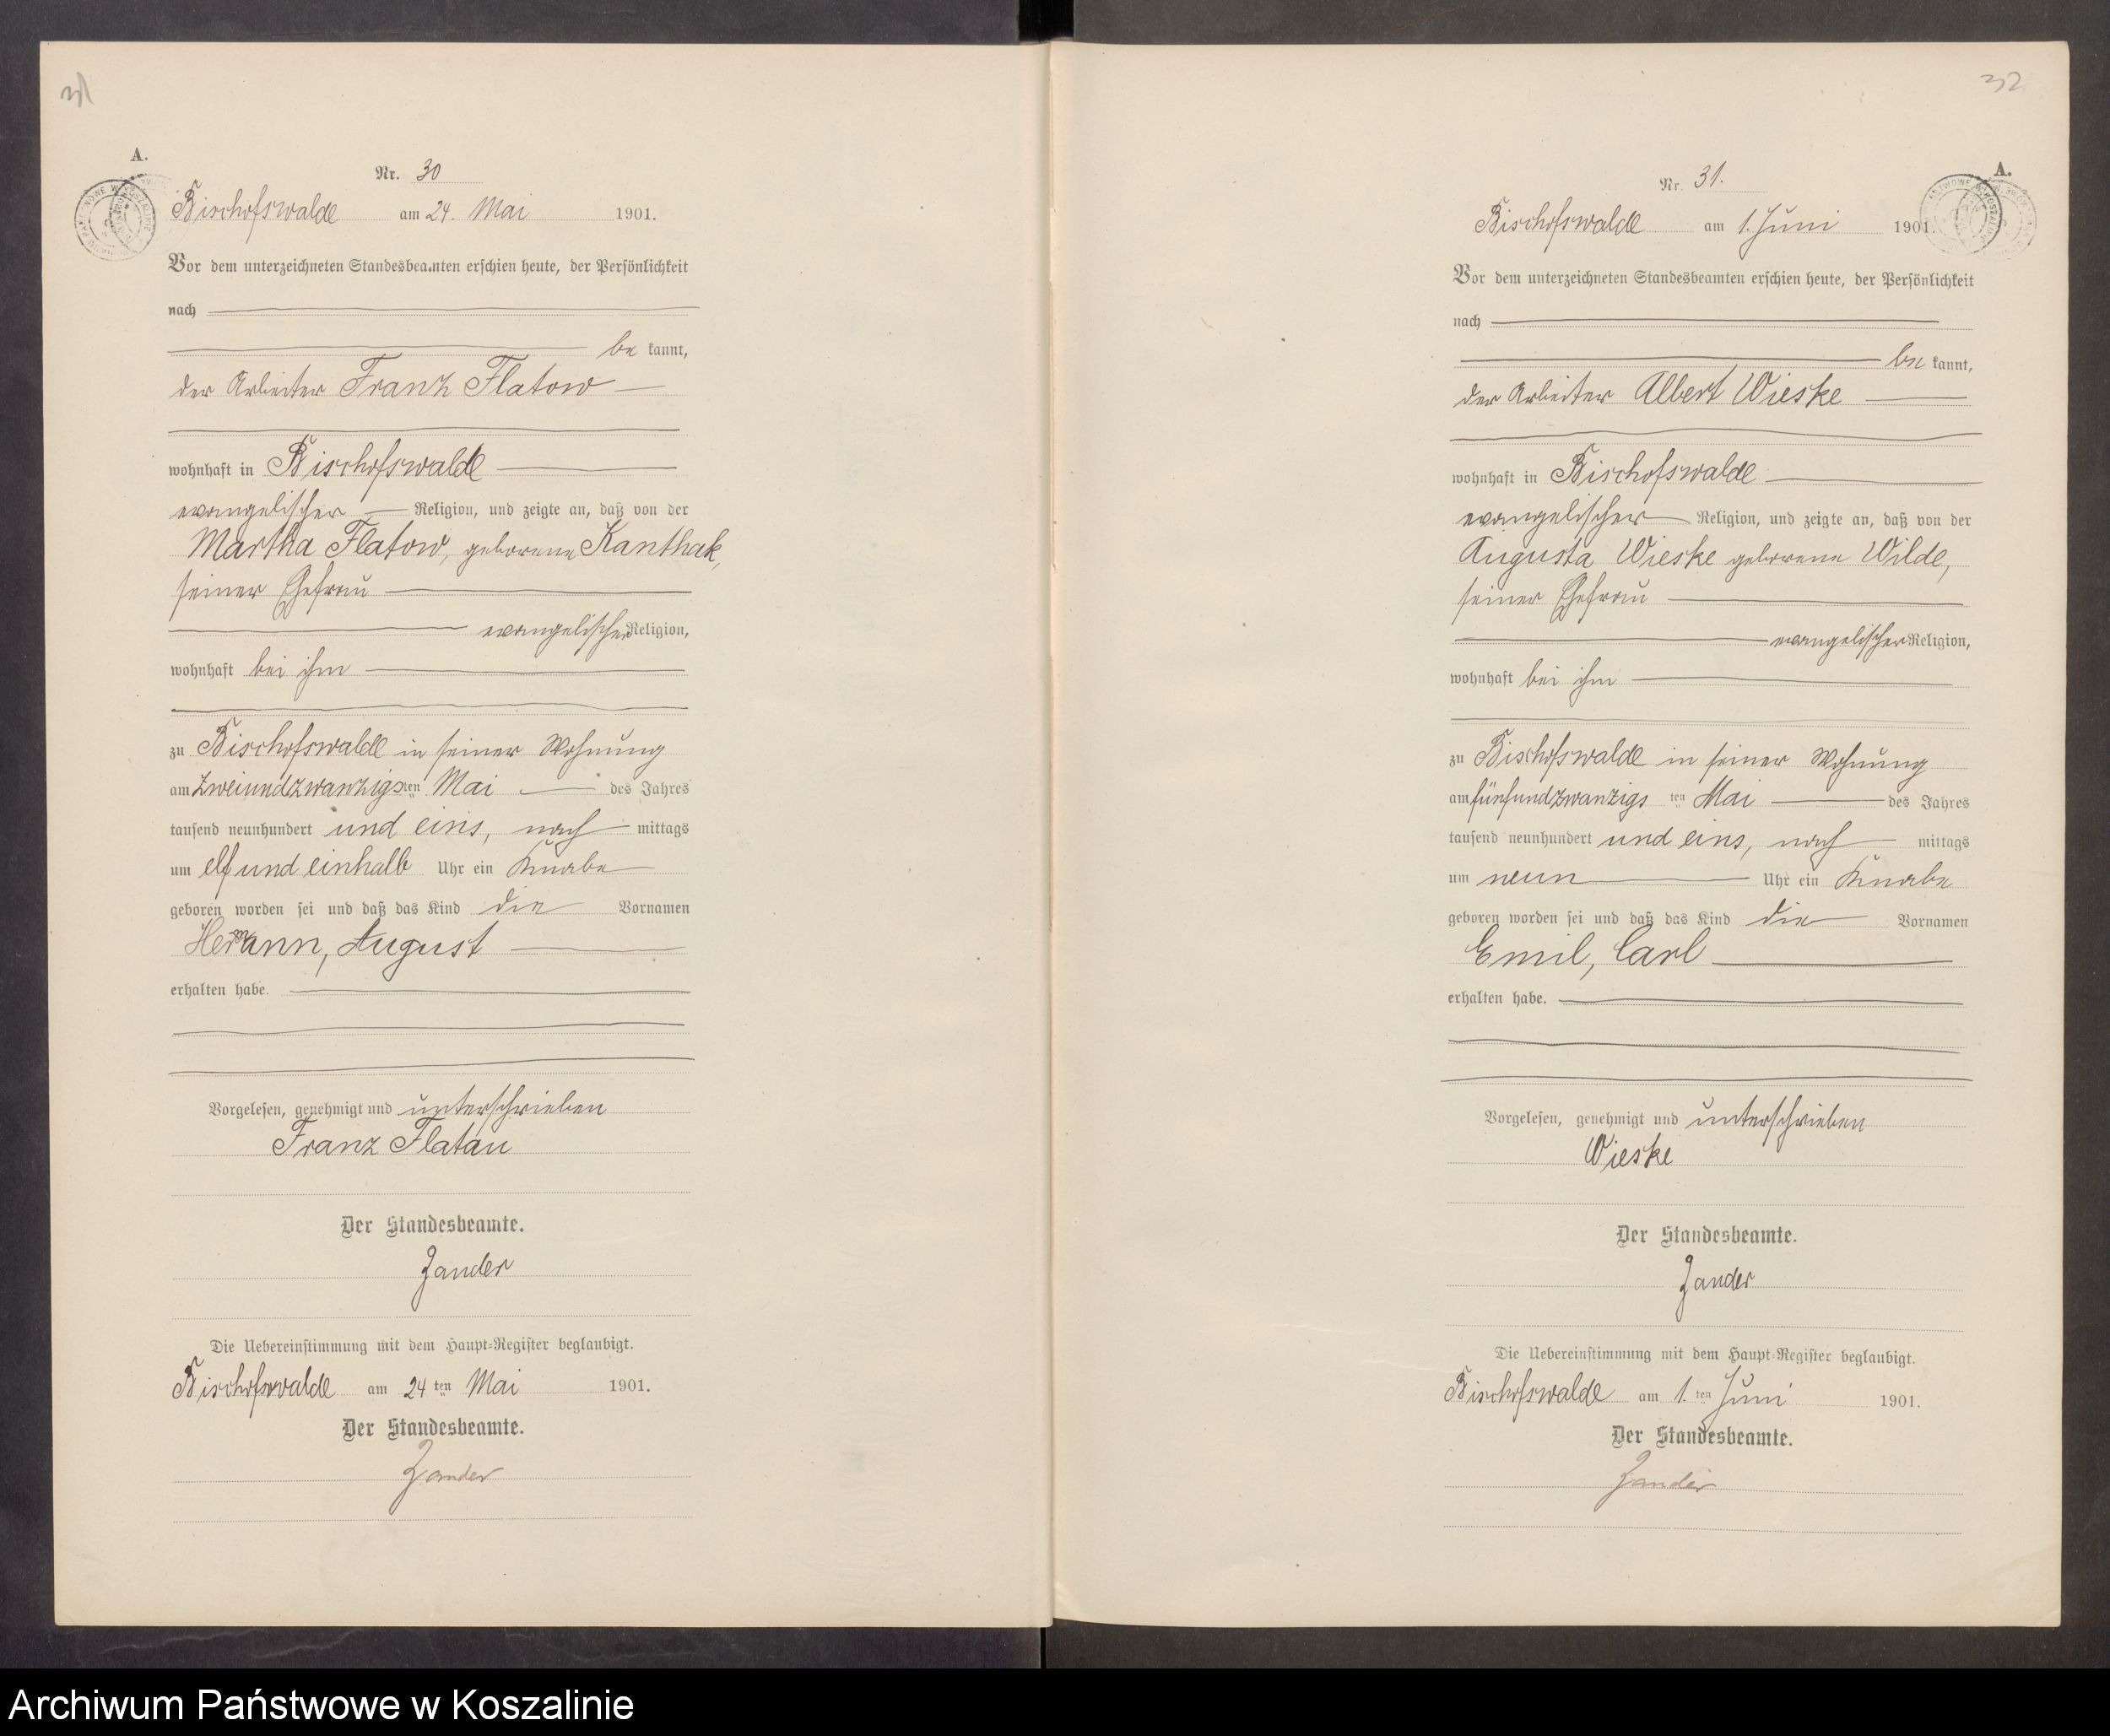 31
A.
Nr. 30
Bischofswalde am 24. Mai 1901.
Vor dem unterzeichneten Standesbeamten erschien heute, der Persönlichkeit
nach
be kannt,
der Arbeiter Franz Flatow
wohnhaft in Bischofswalde
evangelischer Religion, und zeigte an, daß von der
Martha Flatow, geborene Kanthak,
seiner Ehefrau
evangelischer Religion,
wohnhaft bei ihm
zu Bischofswalde in seiner Wohnung
am zweiundzwanzigsten Mai des Jahres
tausend neunhundert und eins, nach mittags
um elf und einhalb Uhr ein Knabe
geboren worden sei und daß das Kind die Vornamen
Hermann, August
erhalten habe.
Vorgelesen, genehmigt und unterschrieben
Franz Flatau
Der Standesbeamte.
Zander
Die Uebereinstimmung mit dem Haupt-Register beglaubigt.
Bischofswalde am 24 ten Mai 1901.
Der Standesbeamte.
Zander
32
A.
Nr. 31.
Bischofswalde am 1. Juni 1901.
Vor dem unterzeichneten Standesbeamten erschien heute, der Persönlichkeit
nach
be kannt,
der Arbeiter Albert Wieske
wohnhaft in Bischofswalde
evangelischer Religion, und zeigte an, daß von der
Augusta Wieske geborene Wilde,
seiner Ehefrau
evangelischer Religion,
wohnhaft bei ihm
zu Bischofswalde in seiner Wohnung
am fünfundzwanzigs ten Mai des Jahres
tausend neunhundert und eins, nach mittags
um neun Uhr ein Knabe
geboren worden sei und daß das Kind die Vornamen
Emil, Carl
erhalten habe.
Vorgelesen, genehmigt und unterschrieben
Wieske
Der Standesbeamte.
Zander
Die Uebereinstimmung mit dem Haupt-Register beglaubigt.
Bischofswalde am 1. ten Juni 1901.
Der Standesbeamte.
Zander
Archiwum Państwowe w Koszalinie